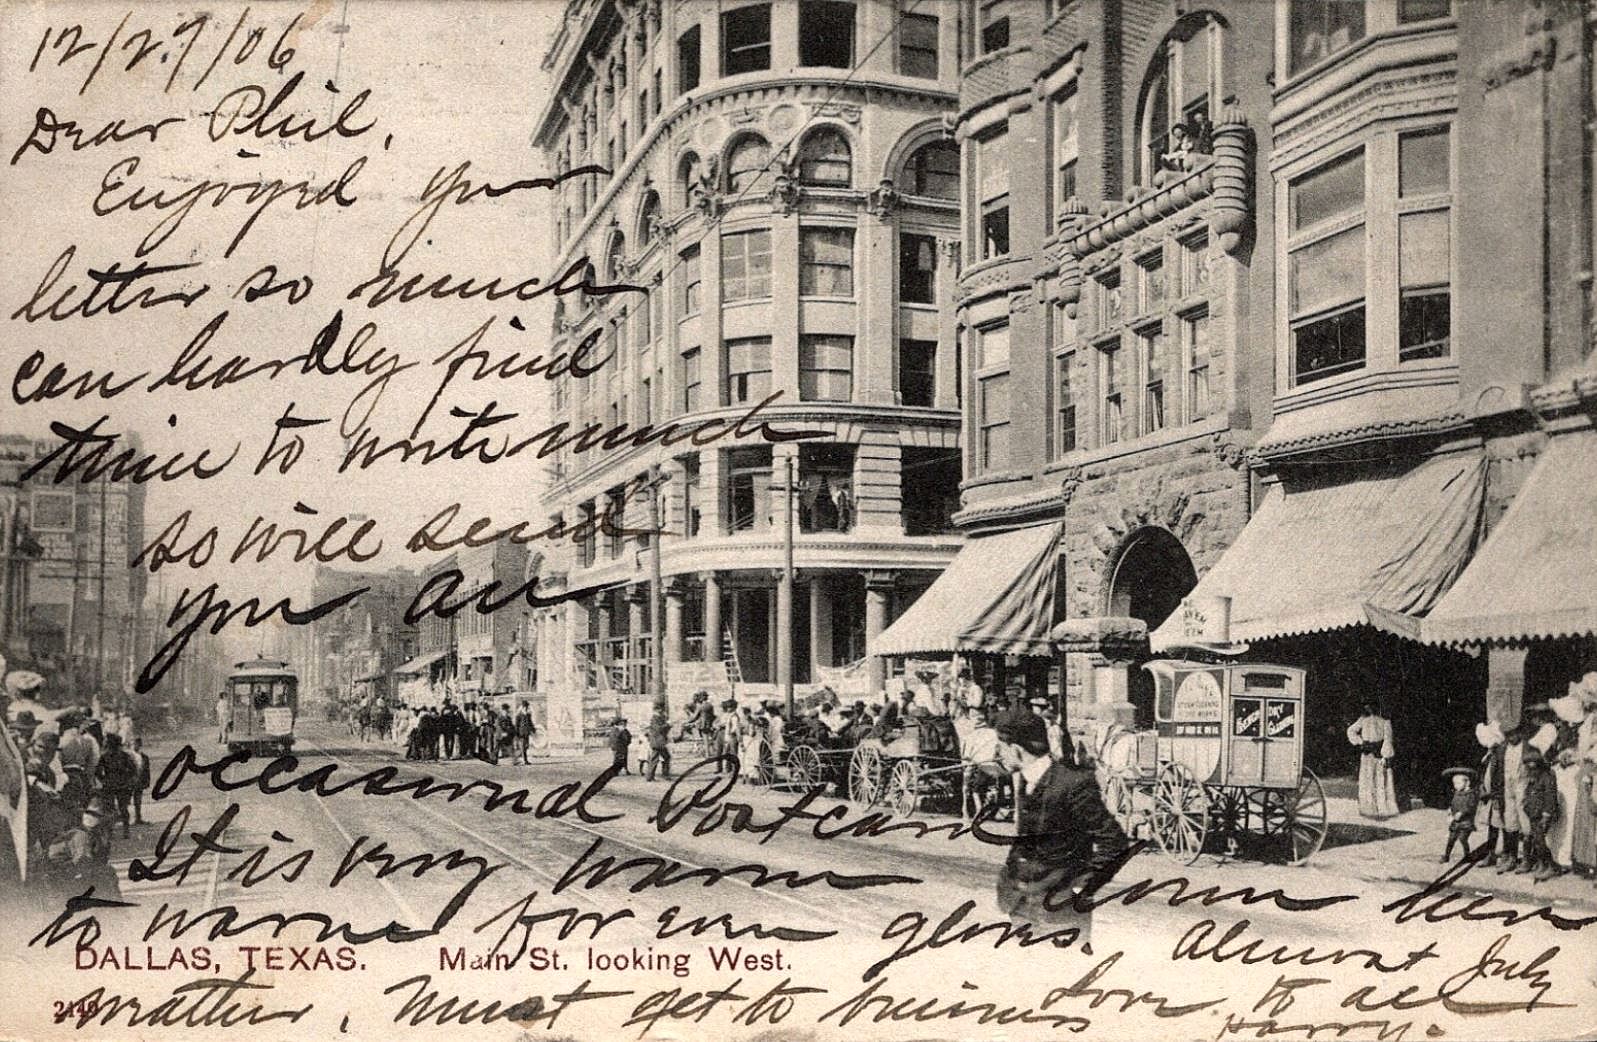 12/27/06
Dear Phil,
Enjoyed your
letter so much
can hardly find
time to write much
so will send
you an
occasional Postcard
It is very warm down here
to warm for even gloves. Almost July
weather. Must get to business Love to all
Harry.
DALLAS, TEXAS. Main St. looking West.